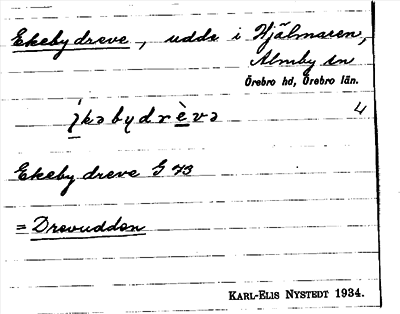 Ekeby dreve, udde i Hjälmaren,
Almby sn
Örebro hd, Örebro län.
4
Ekeby dreve G 73
= Drevudden
KARL-ELIS NYSTEDT 1934.